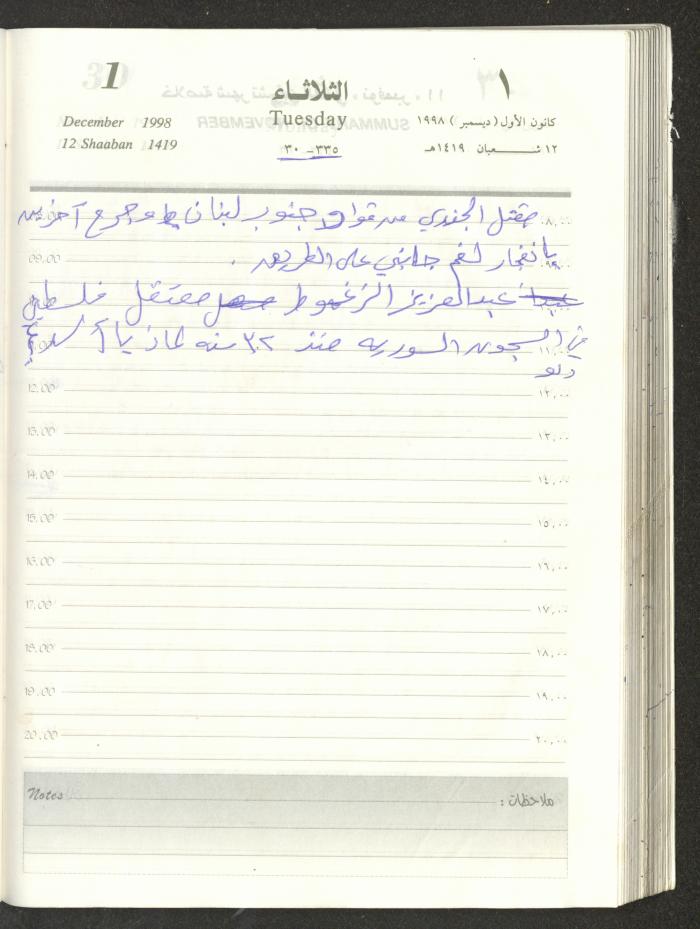 1
الثلاثاء
١
December 1998
Tuesday
كانون الأول (ديسمبر) ١٩٩٨
12 Shaaban 1419
٣٣٥ - ٣٠
١٢ شعبان ١٤١٩هـ
مقتل الجندي من قوات جنوب لبنان وجرح آخرين
08.00 ٨,٠٠
بانفجار لغم جانبي على الطريق .
09.00 ٩,٠٠
عبد العزيز الزغموط معتقل فلسطيني
في السجون السورية منذ ٣٢ سنه لماذا يا
11.00 ١١,٠٠
12.00 ١٢,٠٠
13.00 ١٣,٠٠
14.00 ١٤,٠٠
15.00 ١٥,٠٠
16.00 ١٦,٠٠
17.00 ١٧,٠٠
18.00 ١٨,٠٠
19.00 ١٩,٠٠
20.00 ٢٠,٠٠
Notes ملاحظات :